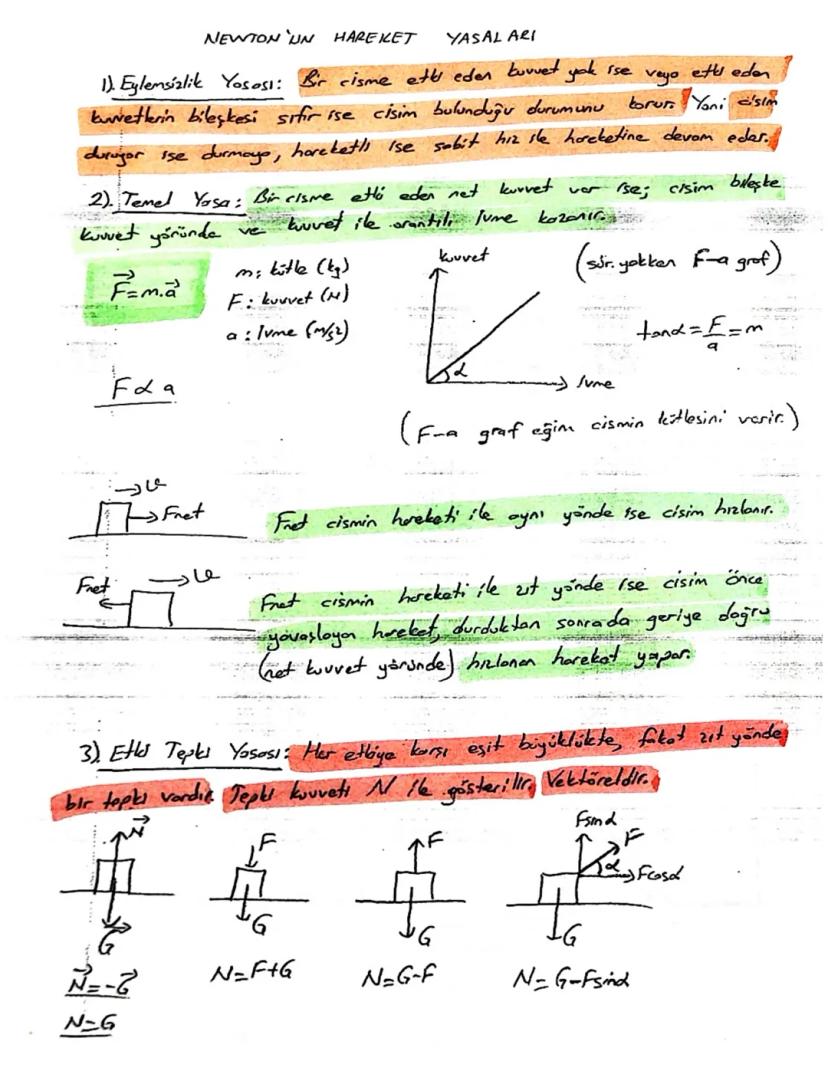 NEWTON'UN HAREKET YASALARI
1). Eylemsizlik Yasası: Bir cisme etki eden kuvvet yok ise veya etki eden
kuvvetlerin bileşkesi sıfır ise cisim bulunduğu durumunu korur. Yani cisim
duruyor ise durmaya, hareketli ise sabit hız ile hareketine devam eder.
2). Temel Yasa: Bir cisme etki eden net kuvvet var ise; cisim bileşke
kuvvet yönünde ve kuvvet ile orantılı ivme kazanır.
F=m.a
m: kütle (kg)
F: kuvvet (N)
a: ivme (m/s2)
F α a
kuvvet
α
ivme
(sür. yokken F-a graf)
tanα = F/a = m
(F-a graf eğim cismin kütlesini verir.)
v
Fnet
Fnet cismin hareketi ile aynı yönde ise cisim hızlanır.
Fnet
v
Fnet cismin hareketi ile zıt yönde ise cisim önce
yavaşlayan hareket, durduktan sonra da geriye doğru
(net kuvvet yönünde) hızlanan hareket yapar.
3). Etki Tepki Yasası: Her etkiye karşı eşit büyüklükte, fakat zıt yönde
bir tepki vardır. Tepki kuvveti N ile gösterilir. Vektöreldir.
N
G
N=-G
N=G
F
G
N=F+G
F
G
N=G-F
Fsinα
F
α
Fcosα
G
N=G-Fsinα